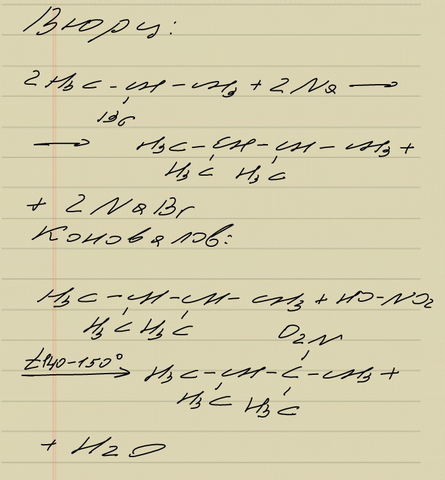 Вюрц:
2H₃C – CH – CH₃ + 2Na ⟶
Br
⟶ H₃C – CH – CH – CH₃ +
H₃C H₃C
+ 2NaBr
Коновалов:
H₃C – CH – CH – CH₃ + HO–NO₂
H₃C H₃C
O₂N
t140–150° ⟶ H₃C – CH – C – CH₃ +
H₃C H₃C
+ H₂O